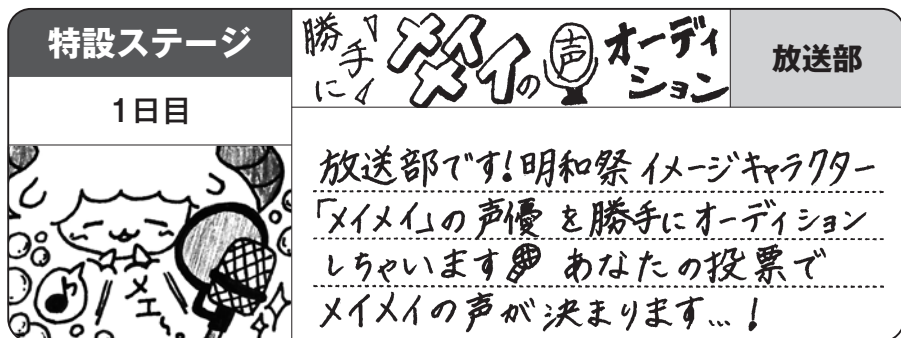 特設ステージ
1日目
勝手に
メイメイの声
オーディション
放送部
放送部です!明和祭イメージキャラクター
「メイメイ」の声優を勝手にオーディション
しちゃいます あなたの投票で
メイメイの声が決まります…!
メエ〜